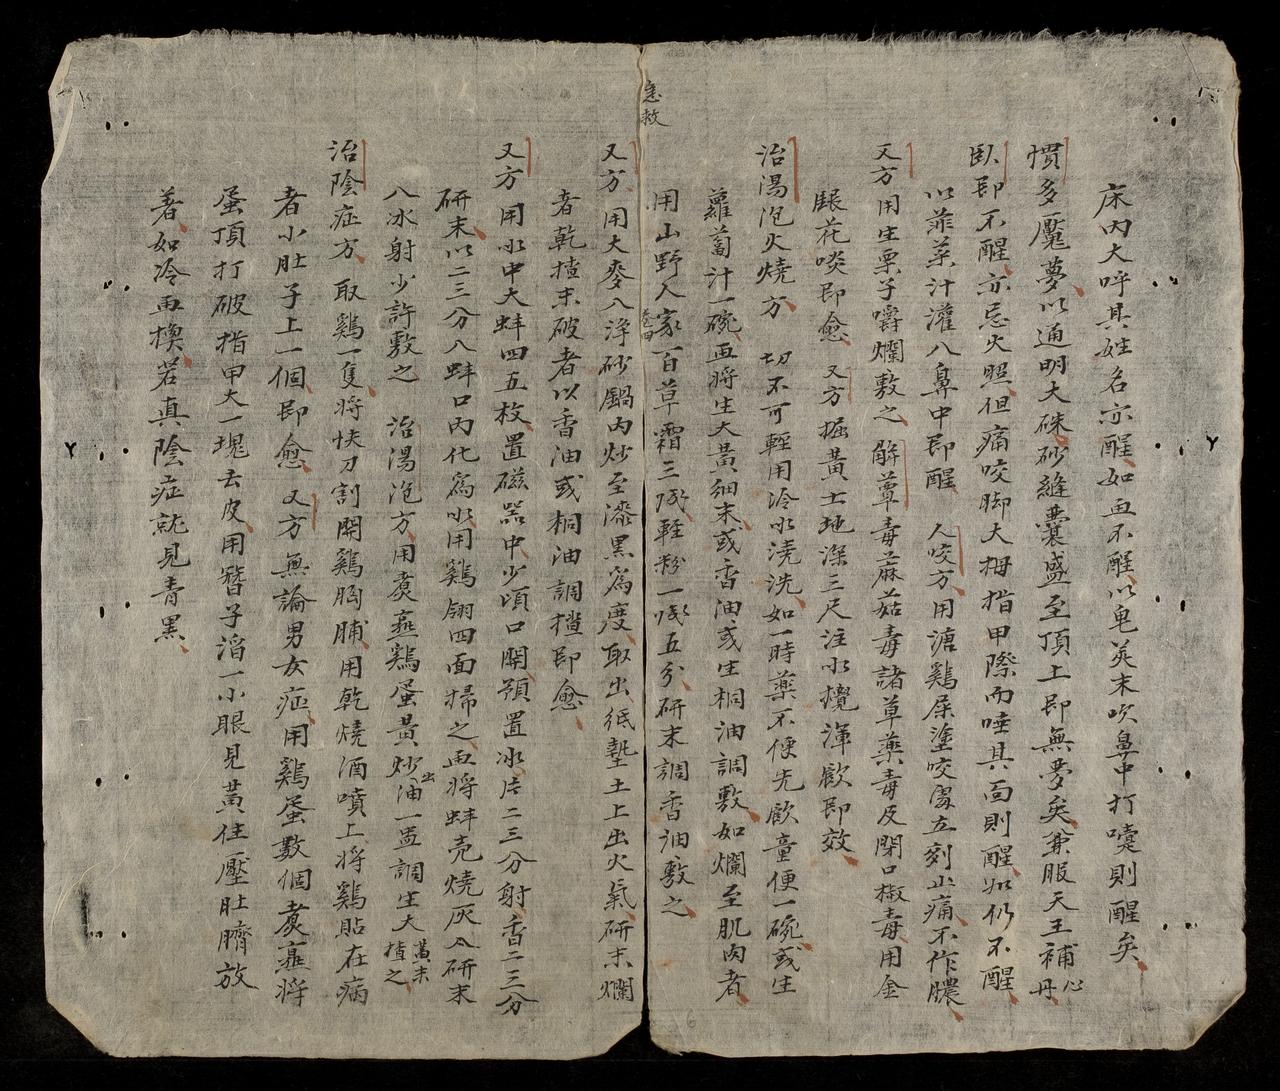 床內大呼其姓名亦醒如再不醒以皂莢末吹鼻中打嚏則醒矣
慣多魘夢以通明大硃砂縫囊盛至頂上即無夢矣兼服天王補心丹
臥即不醒亦忌火照但痛咬脚大拇指甲際而唾其面則醒如仍不醒
以韮菜汁灌入鼻中即醒 人咬方用溏鷄屎塗咬處立刻止痛不作膿
又方用生栗子嚼爛敷之 解蕈毒蔴菇毒諸草藥毒及閉口椒毒用金
銀花啖即愈 又方掘黃土地深三尺注水攪渾飲即效
治湯泡火燒方 切不可輕用冷水澆洗如一時藥不便先飲童便一碗或生
蘿蔔汁一碗再將生大黃細末或香油或生桐油調敷如爛至肌肉者
用山野人家百草霜三錢輕粉一錢五分研末調香油敷之
急救
又方用大麥入淨砂鍋內炒至漆黑為度取出紙墊土上出火氣研末爛
者乾揸末破者以香油或桐油調揸即愈
又方用水中大蚌四五枚置磁器中少頃口開預置冰片二三分射香二三分
研末以二三分入蚌口內化為水用鷄翎四面掃之再將蚌壳燒灰入研末
入冰射少許敷之 治湯泡方用煑熟鷄蛋黃炒出油一盅調生大黃末揸之
治陰症方 取鷄一隻將快刀割開鷄胸脯用乾燒酒噴上將鷄貼在病
者小肚子上一個即愈 又方無論男女症用鷄蛋數個煑熟將
蛋頂打破指甲大一塊去皮用簪子滔一小眼見黃住壓肚臍放
著如冷再換若真陰症就見青黑